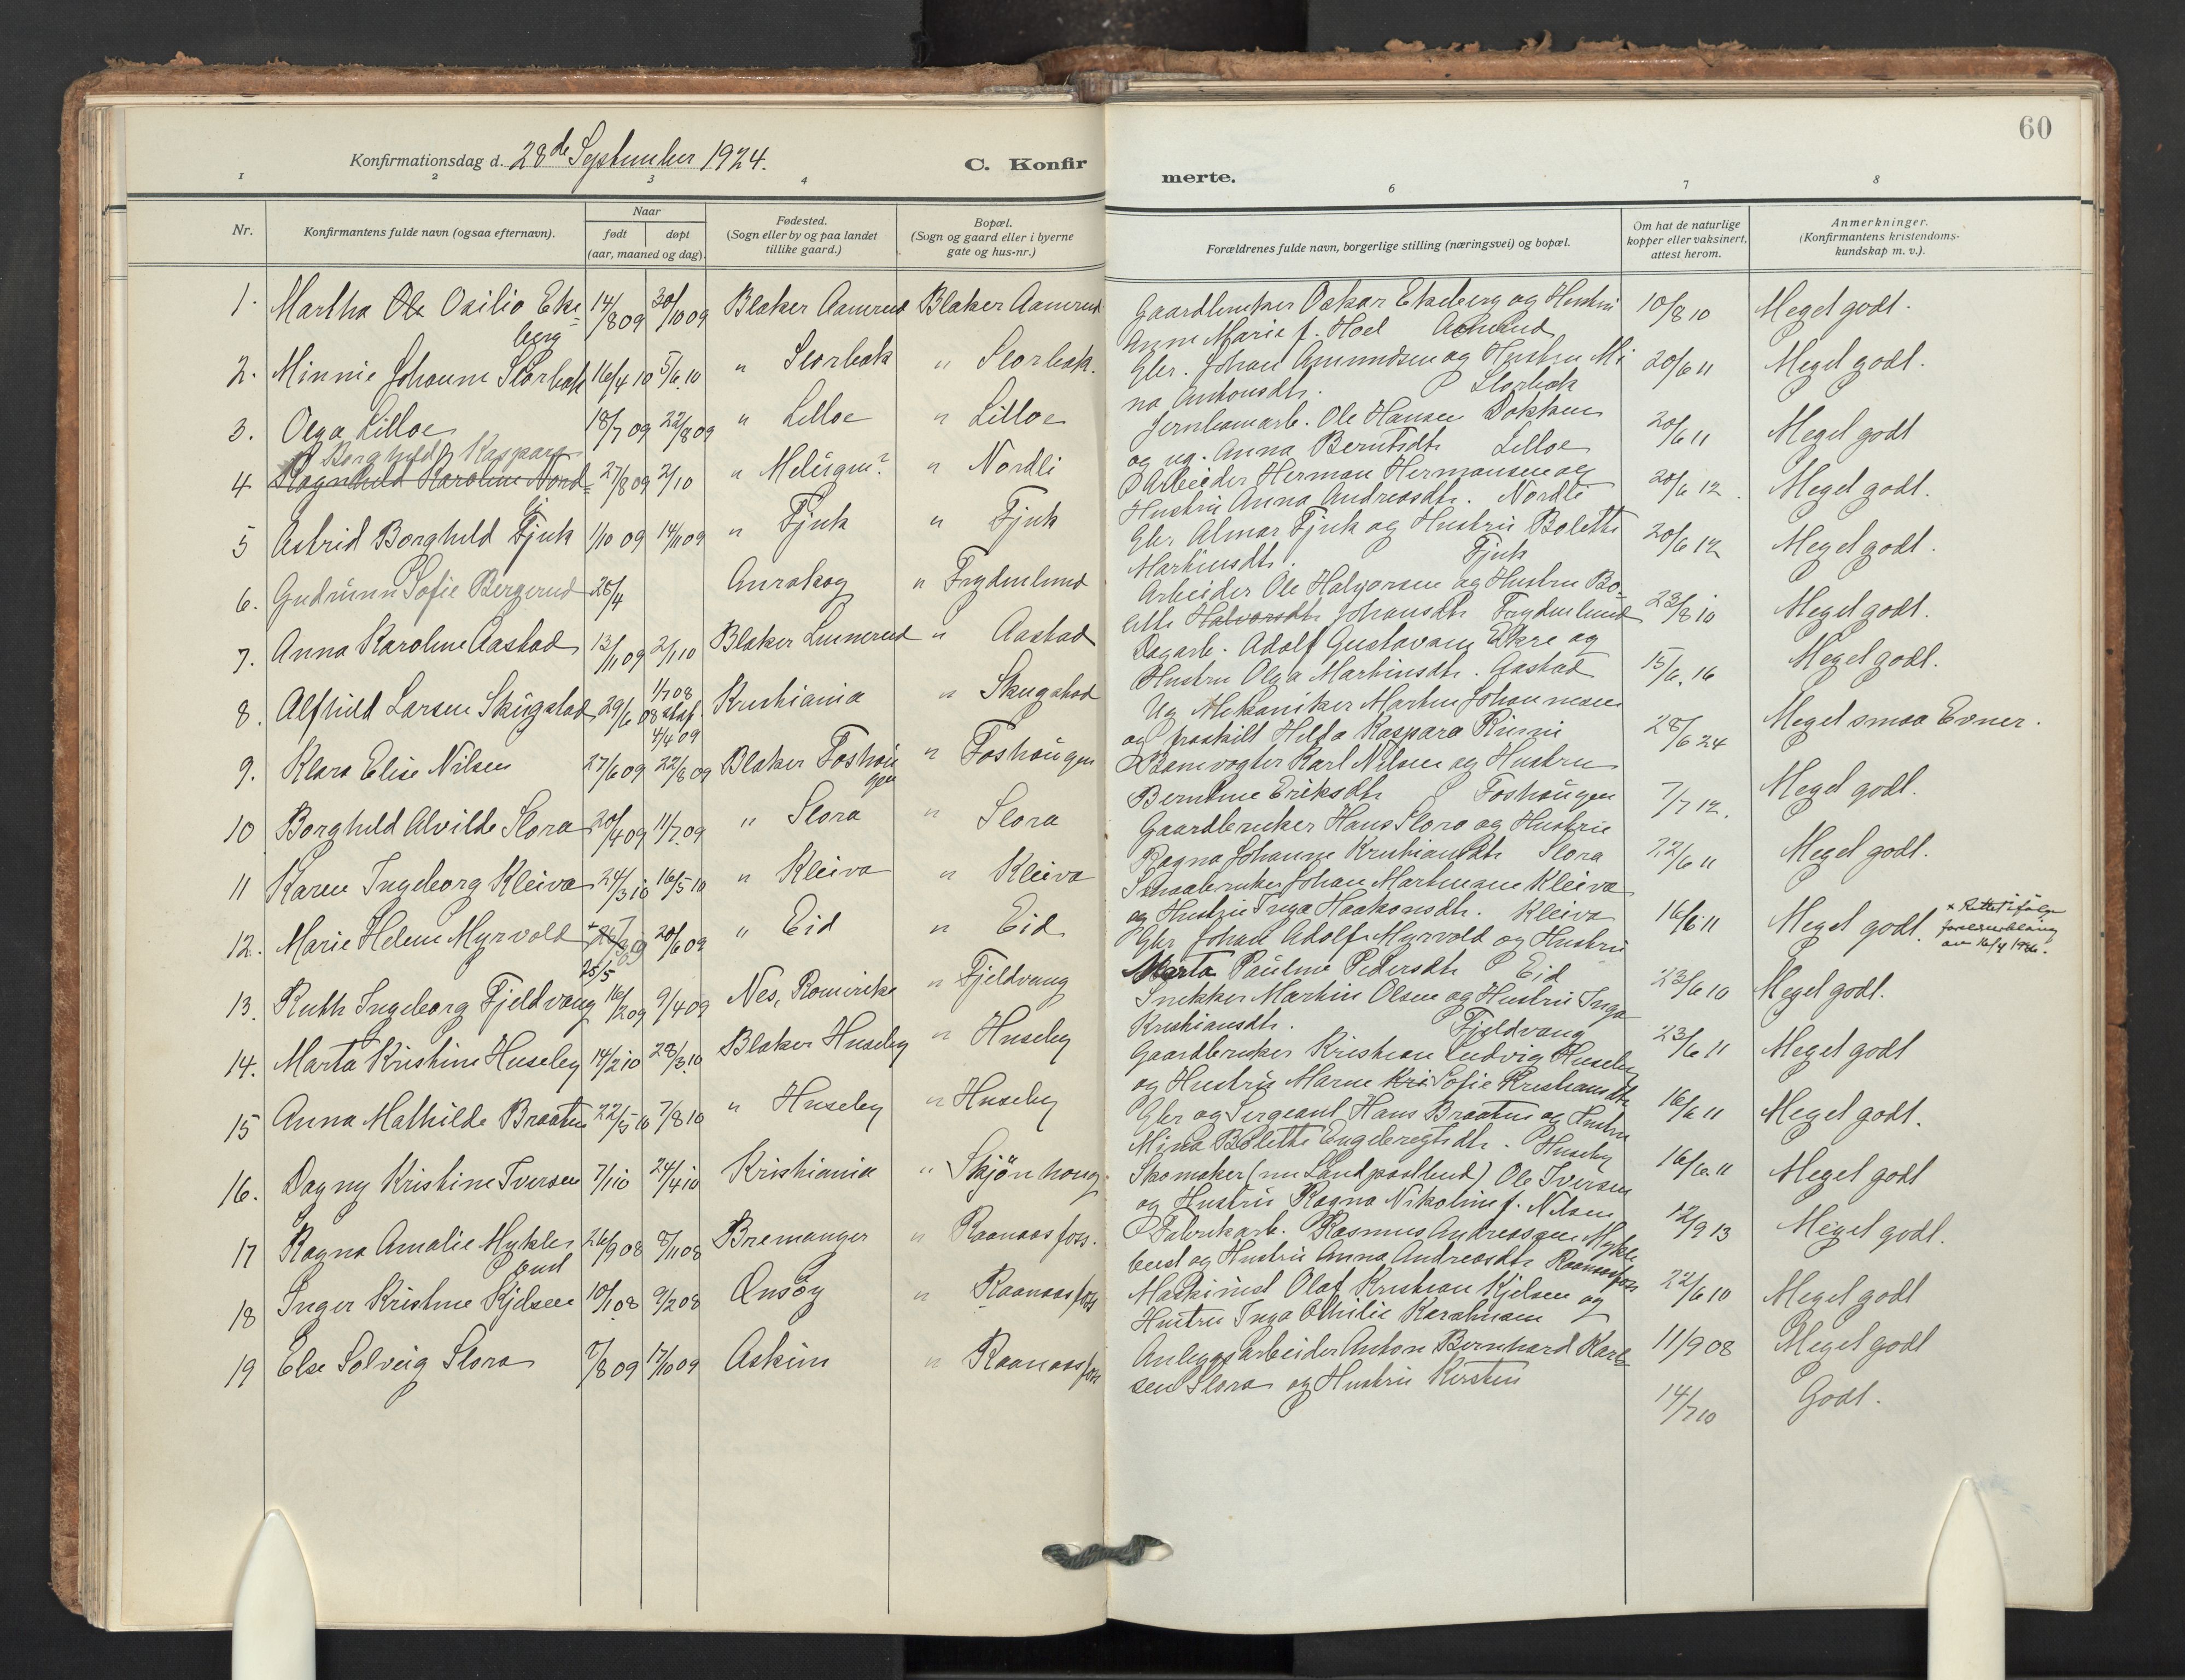 60
Konfirmationsdag d. 28de September 1924.
C. Konfir
merte.
1 2 3 4 6 7 8
Nr.
Konfirmantens fulde navn (ogsaa efternavn).
Naar
født døpt
(aar, maaned og dag)
Fødested.
(Sogn eller by og paa landet
tillike gaard.)
Bopæl.
(Sogn og gaard eller i byerne
gate og hus-nr.)
Forældrenes fulde navn, borgerlige stilling (næringsvei) og bopæl.
Om hat de naturlige
kopper eller vaksinert,
attest herom.
Anmerkninger.
(Konfirmantens kristendoms-
kundskap m. v.).
1. Martha Ole Osilio Eke= 14/8 09 30/10 09 Blaker Aamerud Blaker Aamerud
berg
Gaardbruker Oskar Ekeberg og Hustru
Anne Marie f. Hoel Aamerud
10/8 10 Meget godt.
2. Minnie Johanne Slorbak 16/4 10 5/6 10 " Slorbak " Slorbak.
Gbr. Johan Amundsen og Hustru Mi
na Antonsdtr. Slorbak
20/6 11 Meget godt.
3. Olga Lilloe 18/7 09 22/8 09 " Lilloe " Lilloe
Jernbanearb. Ole Hansen Dokken
og ug. Anna Berntsdtr Lilloe
20/6 11 Meget godt
Borghild Kaspara
4 Ragnhild Karoline Nord= 27/8 09 2/10 " " Nordli
li
Arbeider Herman Hermansen og
Hustru Anna Andreasdtr. Nordli
20/6 12. Meget godt.
5 Astrid Borghild Fjuk 1/10 09 14/11 09 " Fjuk " Fjuk
Gbr. Almar Fjuk og Hustru Bolette
Martinsdtr. Fjuk
20/6 12 Meget godt.
6. Gudrunn Sofie Bergerud 28/4 Aurskog " Frydenlund
Arbeider Ole Halvorsen og Hustru Bo-
lette Halvorsdtr Johansdtr Frydenlund
23/8 10 Meget godt.
7. Anna Karoline Aastad 13/11 09 2/1 10 Blaker Linnerud " Aastad
Dagarb. Adolf Gustavsen Ekre og
Hustru Olga Martinsdtr. Aastad
15/6. 16 Meget godt.
8. Alfhild Larsen Skugstad 29/6 08 1/7 08 Kristiania " Skugstad
stad.
4/4 09
Ug Mekaniker Martin Johannesen
og fraskilt Hilda Kaspara Rinni
28/6 24 Meget smaa Evner.
9. Klara Elise Nilsen 27/6 09 22/8 09 Blaker Foshau " Foshaugen
gen
Banevogter Karl Nilsen og Hustru
Berntine Eriksdtr Foshaugen
7/7 12. Meget godt.
10 Borghild Alvilde Slora 20/4 09 11/7 09 " Slora " Slora
Gaardbruker Hans Slora og Hustru
Ragna Johanne Kristiansdtr Slora
22/6 11 Meget godt.
11 Karen Ingeborg Kleiva 24/3 10 16/5 10 " Kleiva " Kleiva
Smaabruker Johan Martinsen Kleiva
og Hustru Inga Haakonsdtr. Kleiva
16/6 11 Meget godt.
12. Marie Helene Myrvold + 20/6 09 " Eid " Eid
25/5
Gbr Johan Adolf Myrvold og Hustru
Marta Pauline Pedersdtr Eid
x Rettet ifølge
13. Ruth Ingeborg Fjeldvang 16/2 09 9/4 09 Nes, Romerike " Fjeldvang
Snekker Martin Olsen og Hustru Inga
Kristiansdtr. Fjeldvang
23/6 10 Meget godt.
14. Marta Kristine Huseby 14/2 10 28/3 10 Blaker Huseby " Huseby
Gaardbruker Kristian Ludvig Huseby
og Hustru Maren Kri Sofie Kristiansdtr
23/6 11 Meget godt
15 Anna Mathilde Braaten 22/5 10 7/8 10 " Huseby " Huseby
Gbr og Sergeant Hans Braaten og Hustru
Mina Bolette Engebregtsdtr. Huseby
16/6 11 Meget godt.
16. Dagny Kristine Iversen 7/1 10 24/4 10 Kristiania " Skjønhaug
Skomaker (nu Landpostbud) Ole Iversen
og Hustru Ragna Nikoline f. Nilsen
16/6 11 Meget godt
17 Ragna Amalie Mykle= 26/9 08 8/11 08 Bremanger " Raanaasfoss.
bust
Fabrikarb. Rasmus Andreassen Mykle
bust og Hustru Anna Andreasdtr Raanaasfoss
12/9 13 Meget godt.
18 Inger Kristine Kjelsen 10/1 08 9/2 08 Onsøy " Raanaasfoss
Maskinist Olaf Kristian Kjelsen og
Hustru Inga Othilie Karelinsen
22/6 10 Meget godt
19 Else Solveig Slora 7/8 09 17/10 09 Askim " Raanaasfoss
Anleggsarbeider Anton Bernhard Karl-
sen Slora og Hustru Kirsten
11/9 08 Meget godt
14/7 10 Godt.